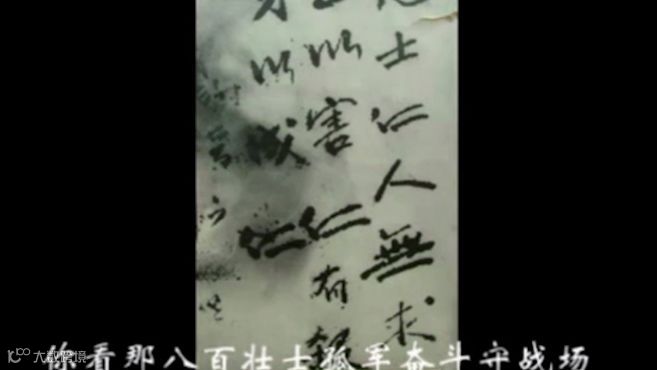 志士仁人無求
生以害仁有殺
身以成仁
你看那八百壮士孤军奋斗守战场
大数跨境